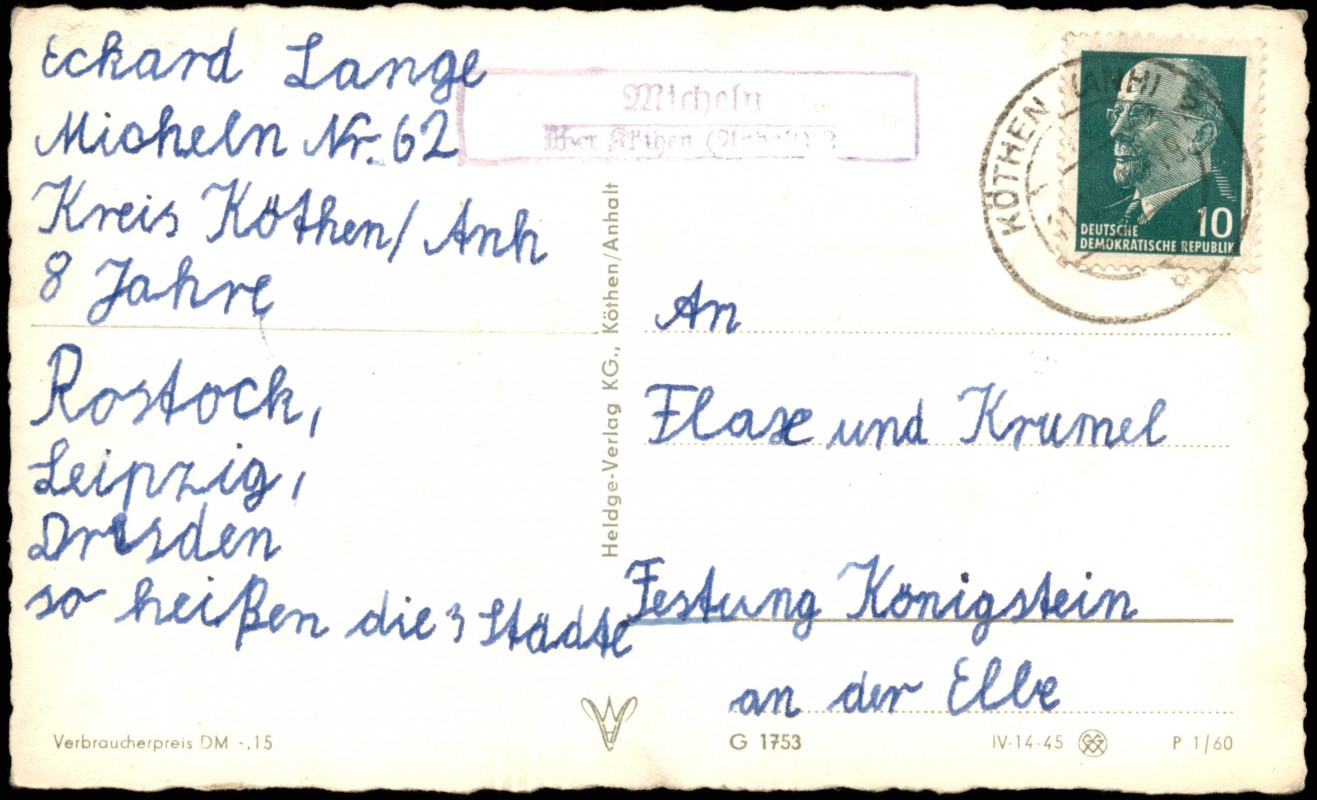 Eckard Lange
Micheln Nr. 62
Kreis Köthen/Anh
8 Jahre
Rostock,
Leipzig,
Dresden
so heißen die 3 Städte
Verbraucherpreis DM -,15
Micheln
über Köthen (Anhalt) 2
Heldge-Verlag KG., Köthen/Anhalt
KÖTHEN (ANH)
10
DEUTSCHE
DEMOKRATISCHE REPUBLIK
An
Flaxe und Krumel
Festung Königstein
an der Elbe
G 1753
IV-14-45
P 1/60